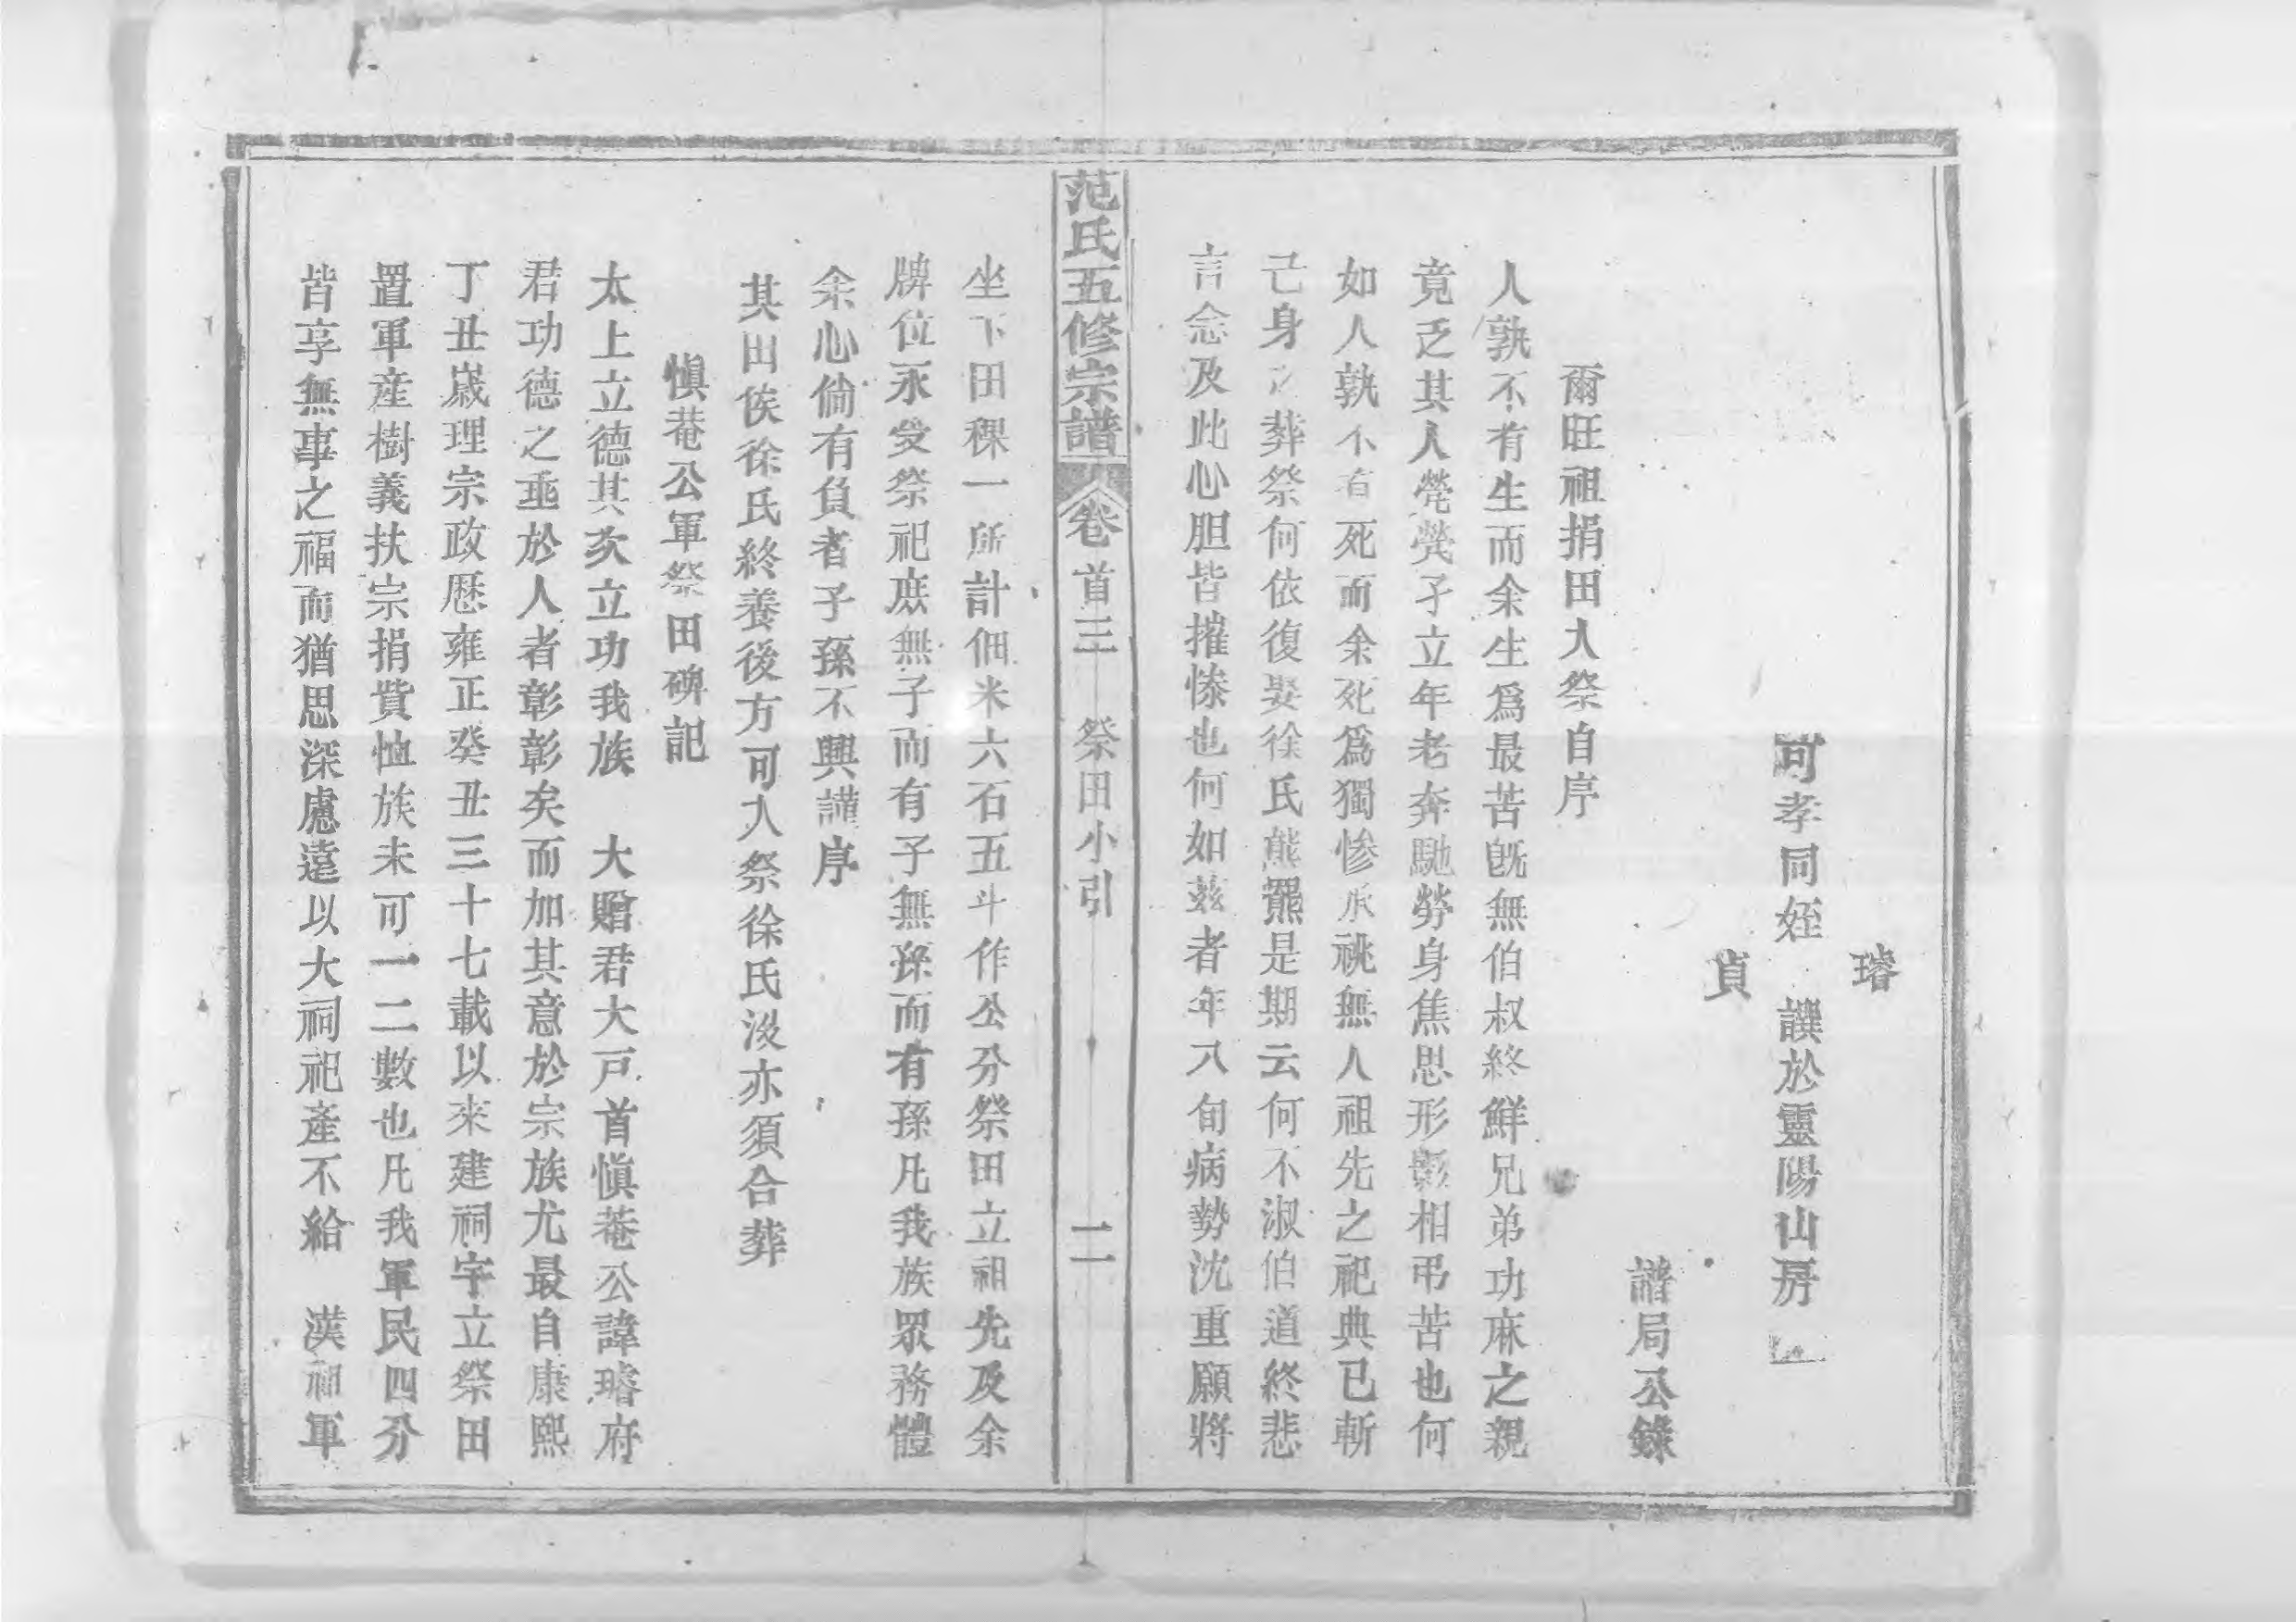 璿
可孝同姪　譔於靈陽山房
貞
譜局公錄
爾旺祖捐田入祭自序
人孰不有生而余生爲最苦旣無伯叔終鮮兄弟功麻之親
竟乏其人煢煢孑立年老奔馳勞身焦思形影相弔苦也何
如人孰不有死而余死爲獨慘承祧無人祖先之祀典已斬
己身之葬祭何依復娶徐氏熊羆是期云何不淑伯道終悲
言念及此心胆皆摧慘也何如茲者年八旬病勢沈重願將
范氏五修宗譜 卷首三 祭田小引 二
坐下田稞一所計佃米六石五斗作公分祭田立祖先及余
牌位永受祭祀庶無子而有子無孫而有孫凡我族眾務體
余心倘有負者子孫不興謹序
其田俟徐氏終養後方可入祭徐氏沒亦須合葬
愼菴公軍祭田碑記
太上立德其次立功我族　大贈君大戸首愼菴公諱璿府
君功德之垂於人者彰彰矣而加其意於宗族尤最自康熙
丁丑歲理宗政歷雍正癸丑三十七載以來建祠宇立祭田
置軍産樹義扶宗捐貲恤族未可一二數也凡我軍民四分
皆享無事之福而猶思深慮遠以大祠祀產不給　漢祖軍